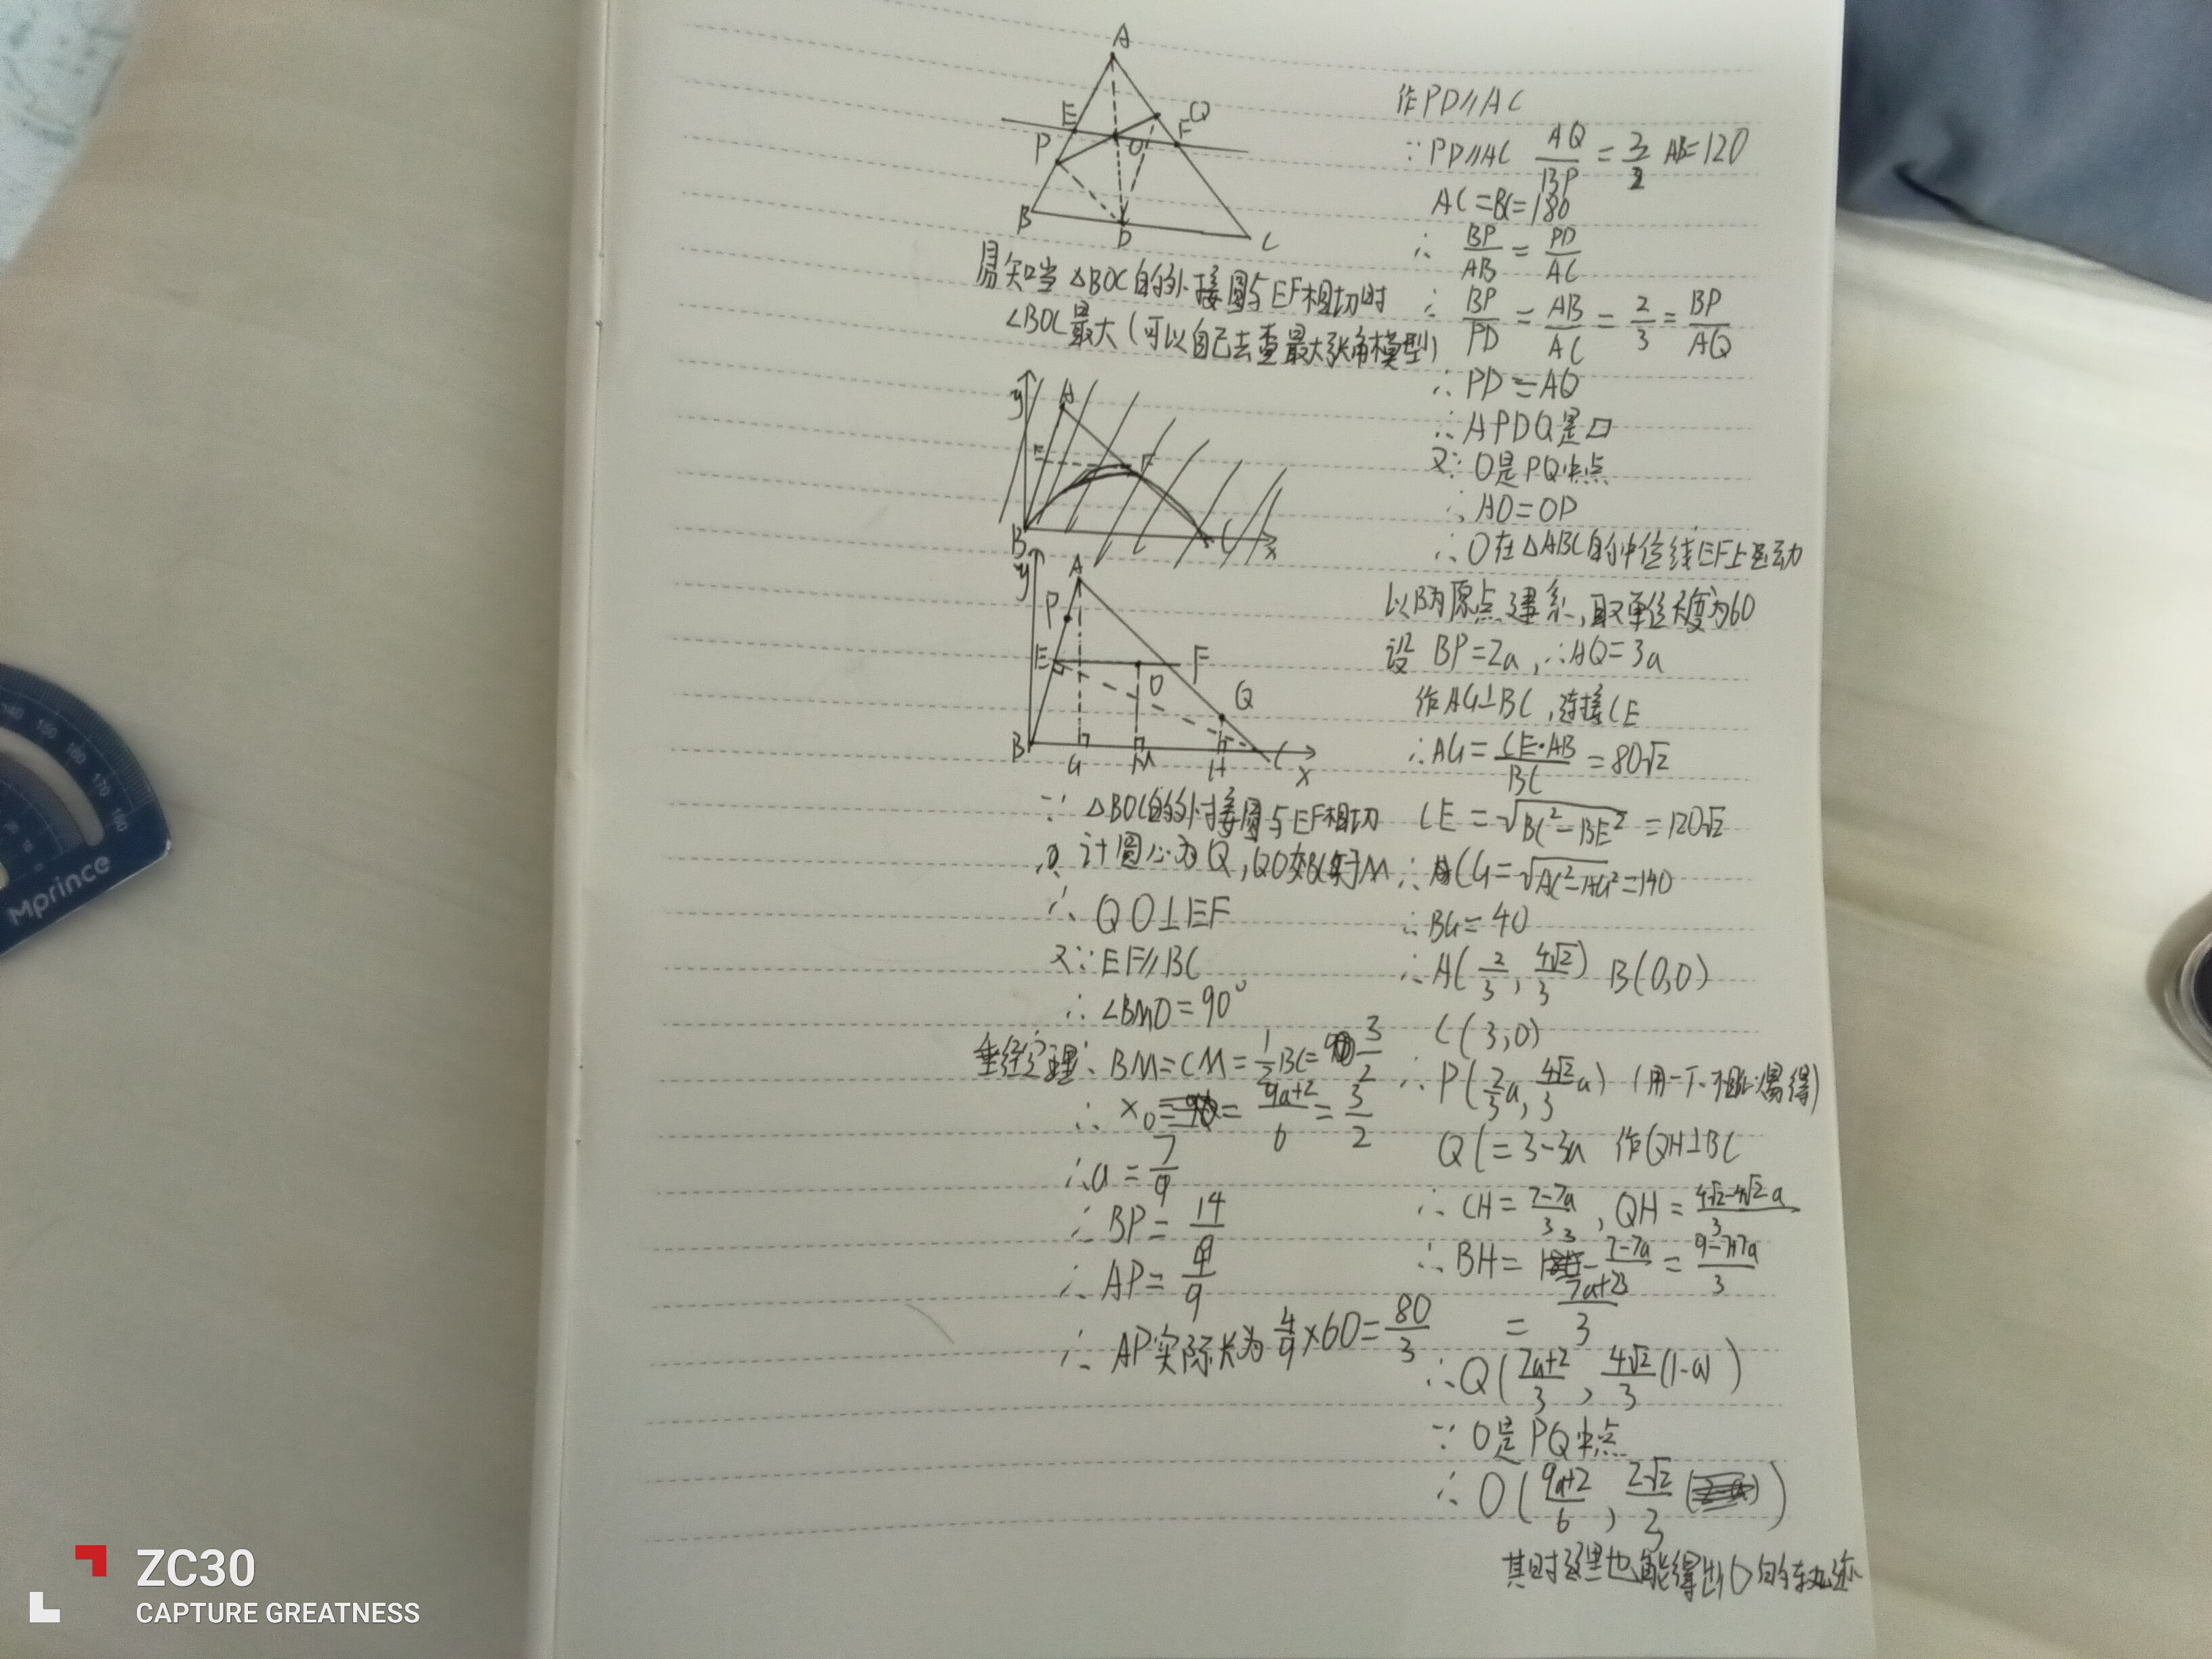 作PD∥AC
∵PD∥AC AQ/BP=3/2 AB=120
AC=BC=180
∴ BP/AB = PD/AC
∴ BP/PD = AB/AC = 2/3 = BP/AQ
∴ PD=AQ
∴ APDQ是▱
又∵O是PQ中点
∴AO=OD
∴O在△ABC的中位线EF上运动
以B为原点建系,取单位长度为60
设 BP=2a,∴AQ=3a
作AG⊥BC,连接CE
∴AG=CE·AB/BC=80√2
CE=√BC²-BE²=120√2
∴CG=√AC²-AG²=140
∴BG=40
∴A(2/3, 4√2/3) B(0,0)
C(3,0)
∴P(2/3a, 4√2/3a) (用一下相似易得)
QC=3-3a 作QH⊥BC
∴CH=7-7a/3, QH=4√2-4√2a/3
∴BH=3-7-7a/3=9-7+7a/3
=7a+2/3
∴Q(7a+2/3, 4√2/3(1-a))
∵O是PQ中点
∴O(9a+2/6, 2√2/3)
其时这里也能得出O的轨迹
A
E
Q
P
O
F
B
D
C
易知当△BOC的外接圆与EF相切时
∠BOC最大(可以自己去查最大张角模型)
y
A
E
F
B
C
x
y
A
P
E
F
O
Q
B
G
M
H
C
x
∵△BOC的外接圆与EF相切
计圆心为Q,QO交BC于M
∴QO⊥EF
又∵EF∥BC
∴∠BMO=90°
垂径定理∴BM=CM=1/2BC=3/2
∴x₀=9a+2/6=3/2
∴a=7/9
∴BP=14/9
∴AP=4/9
∴AP实际长为4/9×60=80/3
mprince
140
150
160
170
180
ZC30
CAPTURE GREATNESS